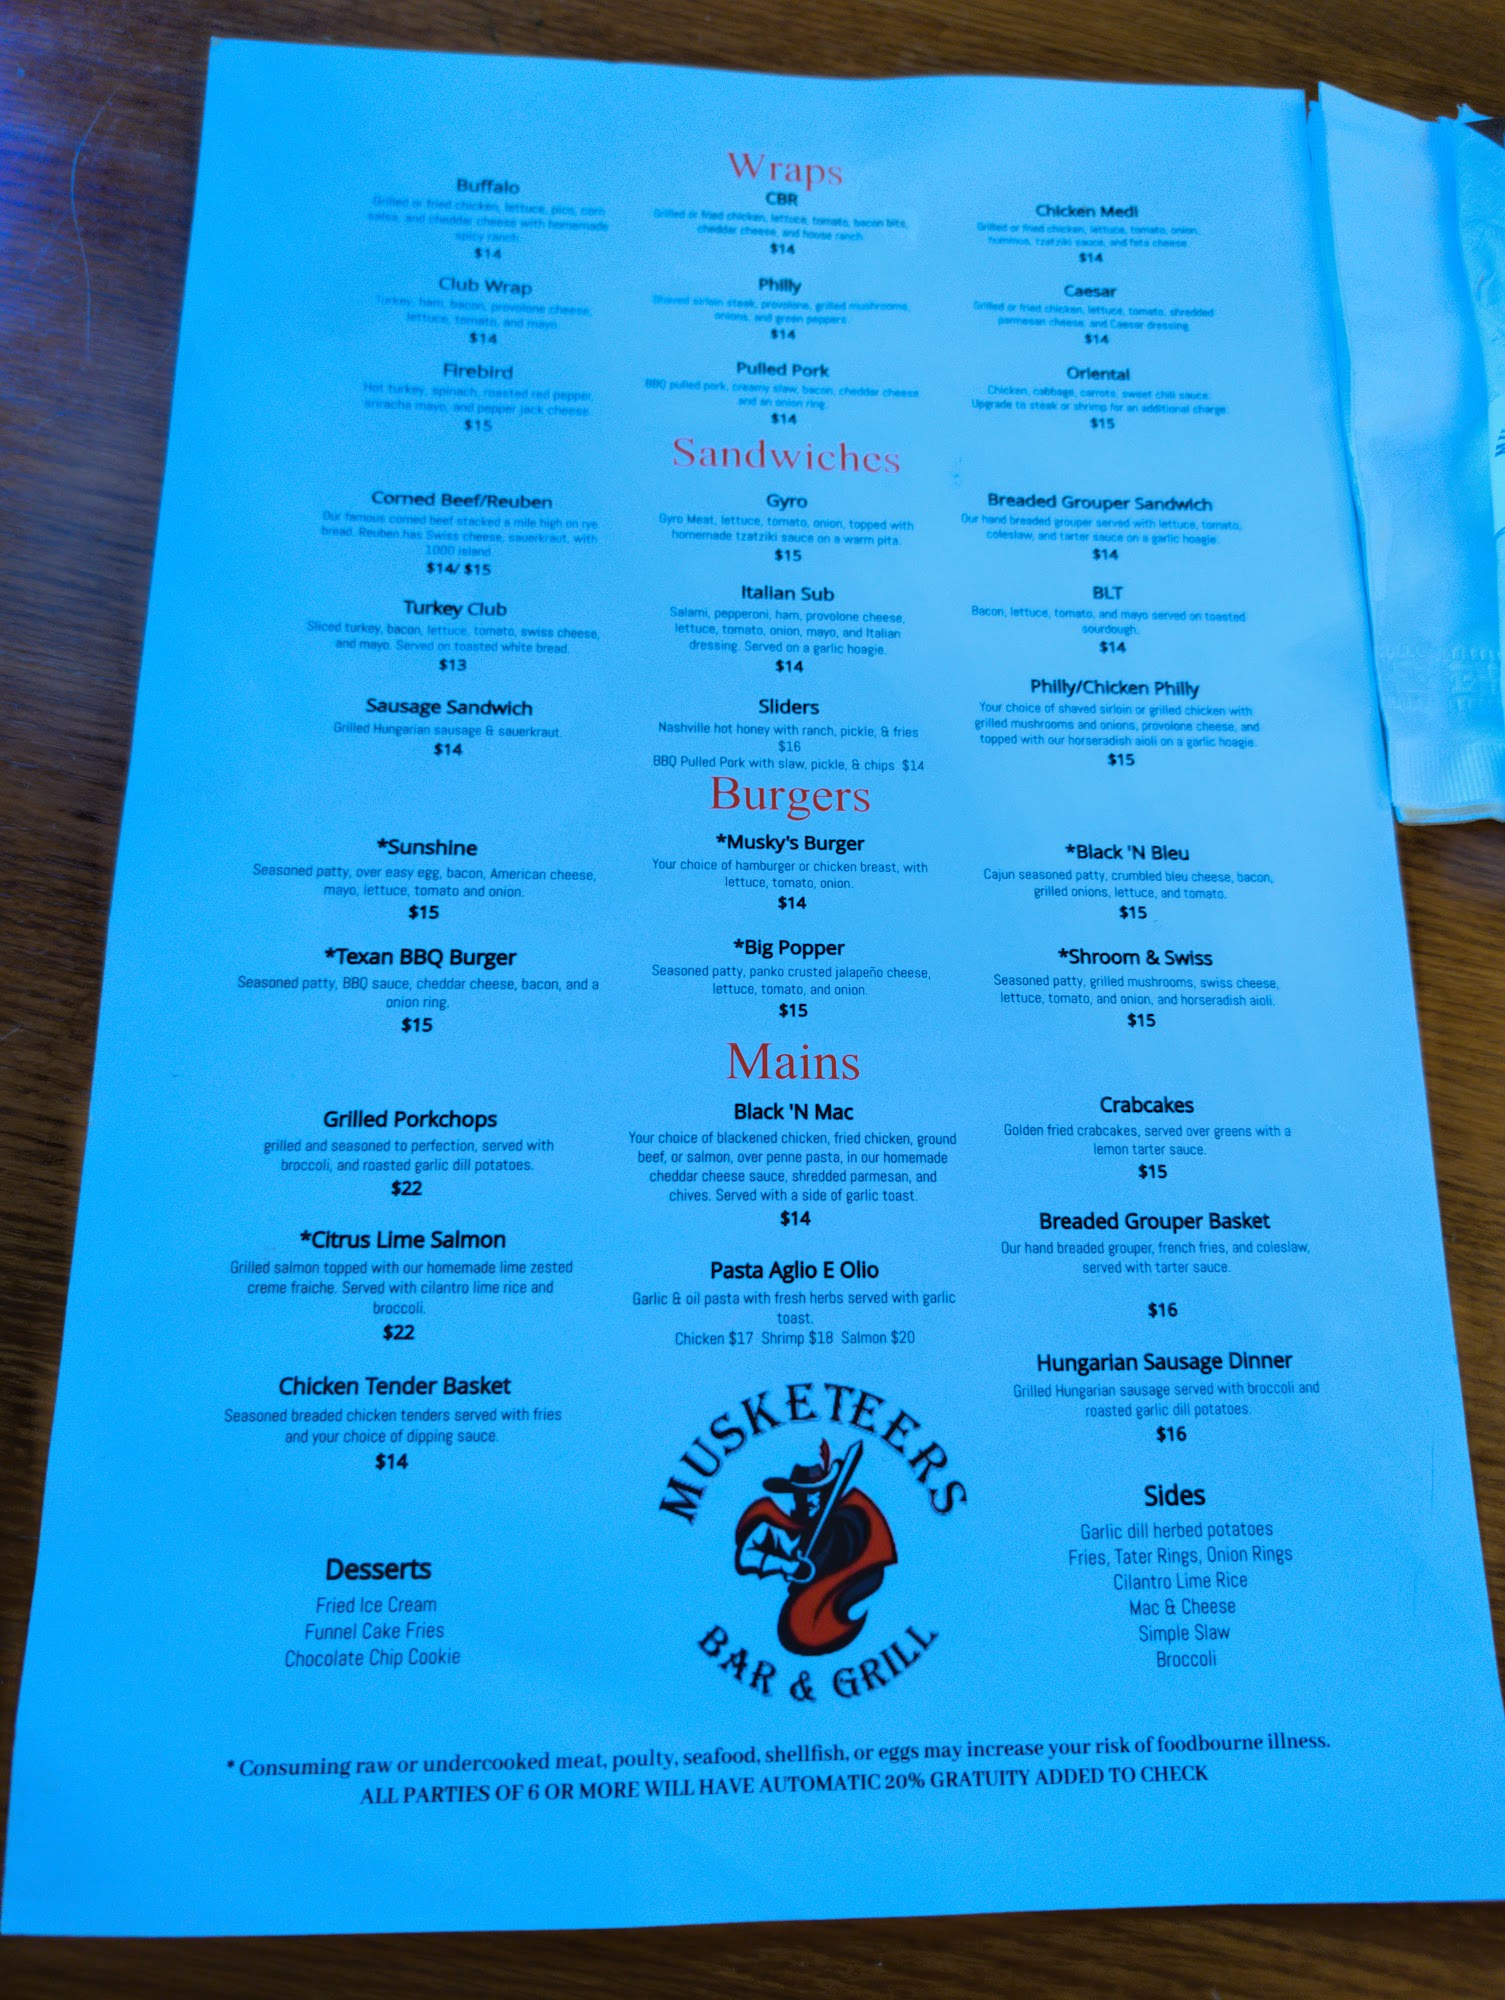 Wraps
Buffalo
Grilled or fried chicken, lettuce, pico, corn
salsa, and cheddar cheese with homemade
spicy ranch.
$14
CBR
Grilled or fried chicken, lettuce, tomato, bacon bits,
cheddar cheese, and house ranch
$14
Chicken Medi
Grilled or fried chicken, lettuce, tomato, onion,
hummus, tzatziki sauce, and feta cheese.
$14
Club Wrap
Turkey, ham, bacon, provolone cheese,
lettuce, tomato, and mayo.
$14
Philly
Shaved sirloin steak, provolone, grilled mushrooms,
onions, and green peppers.
$14
Caesar
Grilled or fried chicken, lettuce, tomato, shredded
parmesan cheese, and Caesar dressing.
$14
Firebird
Hot turkey, spinach, roasted red pepper,
sriracha mayo, and pepper jack cheese.
$15
Pulled Pork
BBQ pulled pork, creamy slaw, bacon, cheddar cheese
and an onion ring.
$14
Oriental
Chicken, cabbage, carrots, sweet chili sauce.
Upgrade to steak or shrimp for an additional charge.
$15
Sandwiches
Corned Beef/Reuben
Our famous corned beef stacked a mile high on rye
bread. Reuben has Swiss cheese, sauerkraut, with
1000 island.
$14/ $15
Gyro
Gyro Meat, lettuce, tomato, onion, topped with
homemade tzatziki sauce on a warm pita.
$15
Breaded Grouper Sandwich
Our hand breaded grouper served with lettuce, tomato,
coleslaw, and tarter sauce on a garlic hoagie.
$14
Turkey Club
Sliced turkey, bacon, lettuce, tomato, swiss cheese,
and mayo. Served on toasted white bread.
$13
Italian Sub
Salami, pepperoni, ham, provolone cheese,
lettuce, tomato, onion, mayo, and Italian
dressing. Served on a garlic hoagie.
$14
BLT
Bacon, lettuce, tomato, and mayo served on toasted
sourdough.
$14
Sausage Sandwich
Grilled Hungarian sausage & sauerkraut.
$14
Sliders
Nashville hot honey with ranch, pickle, & fries
$16
BBQ Pulled Pork with slaw, pickle, & chips $14
Philly/Chicken Philly
Your choice of shaved sirloin or grilled chicken with
grilled mushrooms and onions, provolone cheese, and
topped with our horseradish aioli on a garlic hoagie.
$15
Burgers
*Sunshine
Seasoned patty, over easy egg, bacon, American cheese,
mayo, lettuce, tomato and onion.
$15
*Musky's Burger
Your choice of hamburger or chicken breast, with
lettuce, tomato, onion.
$14
*Black 'N Bleu
Cajun seasoned patty, crumbled bleu cheese, bacon,
grilled onions, lettuce, and tomato.
$15
*Texan BBQ Burger
Seasoned patty, BBQ sauce, cheddar cheese, bacon, and a
onion ring.
$15
*Big Popper
Seasoned patty, panko crusted jalapeño cheese,
lettuce, tomato, and onion.
$15
*Shroom & Swiss
Seasoned patty, grilled mushrooms, swiss cheese,
lettuce, tomato, and onion, and horseradish aioli.
$15
Mains
Grilled Porkchops
grilled and seasoned to perfection, served with
broccoli, and roasted garlic dill potatoes.
$22
Black 'N Mac
Your choice of blackened chicken, fried chicken, ground
beef, or salmon, over penne pasta, in our homemade
cheddar cheese sauce, shredded parmesan, and
chives. Served with a side of garlic toast.
$14
Crabcakes
Golden fried crabcakes, served over greens with a
lemon tarter sauce.
$15
*Citrus Lime Salmon
Grilled salmon topped with our homemade lime zested
creme fraiche. Served with cilantro lime rice and
broccoli.
$22
Pasta Aglio E Olio
Garlic & oil pasta with fresh herbs served with garlic
toast.
Chicken $17 Shrimp $18 Salmon $20
Breaded Grouper Basket
Our hand breaded grouper, french fries, and coleslaw,
served with tarter sauce.
$16
Chicken Tender Basket
Seasoned breaded chicken tenders served with fries
and your choice of dipping sauce.
$14
Hungarian Sausage Dinner
Grilled Hungarian sausage served with broccoli and
roasted garlic dill potatoes.
$16
Desserts
Fried Ice Cream
Funnel Cake Fries
Chocolate Chip Cookie
MUSKETEERS
BAR & GRILL
Sides
Garlic dill herbed potatoes
Fries, Tater Rings, Onion Rings
Cilantro Lime Rice
Mac & Cheese
Simple Slaw
Broccoli
* Consuming raw or undercooked meat, poulty, seafood, shellfish, or eggs may increase your risk of foodbourne illness.
ALL PARTIES OF 6 OR MORE WILL HAVE AUTOMATIC 20% GRATUITY ADDED TO CHECK